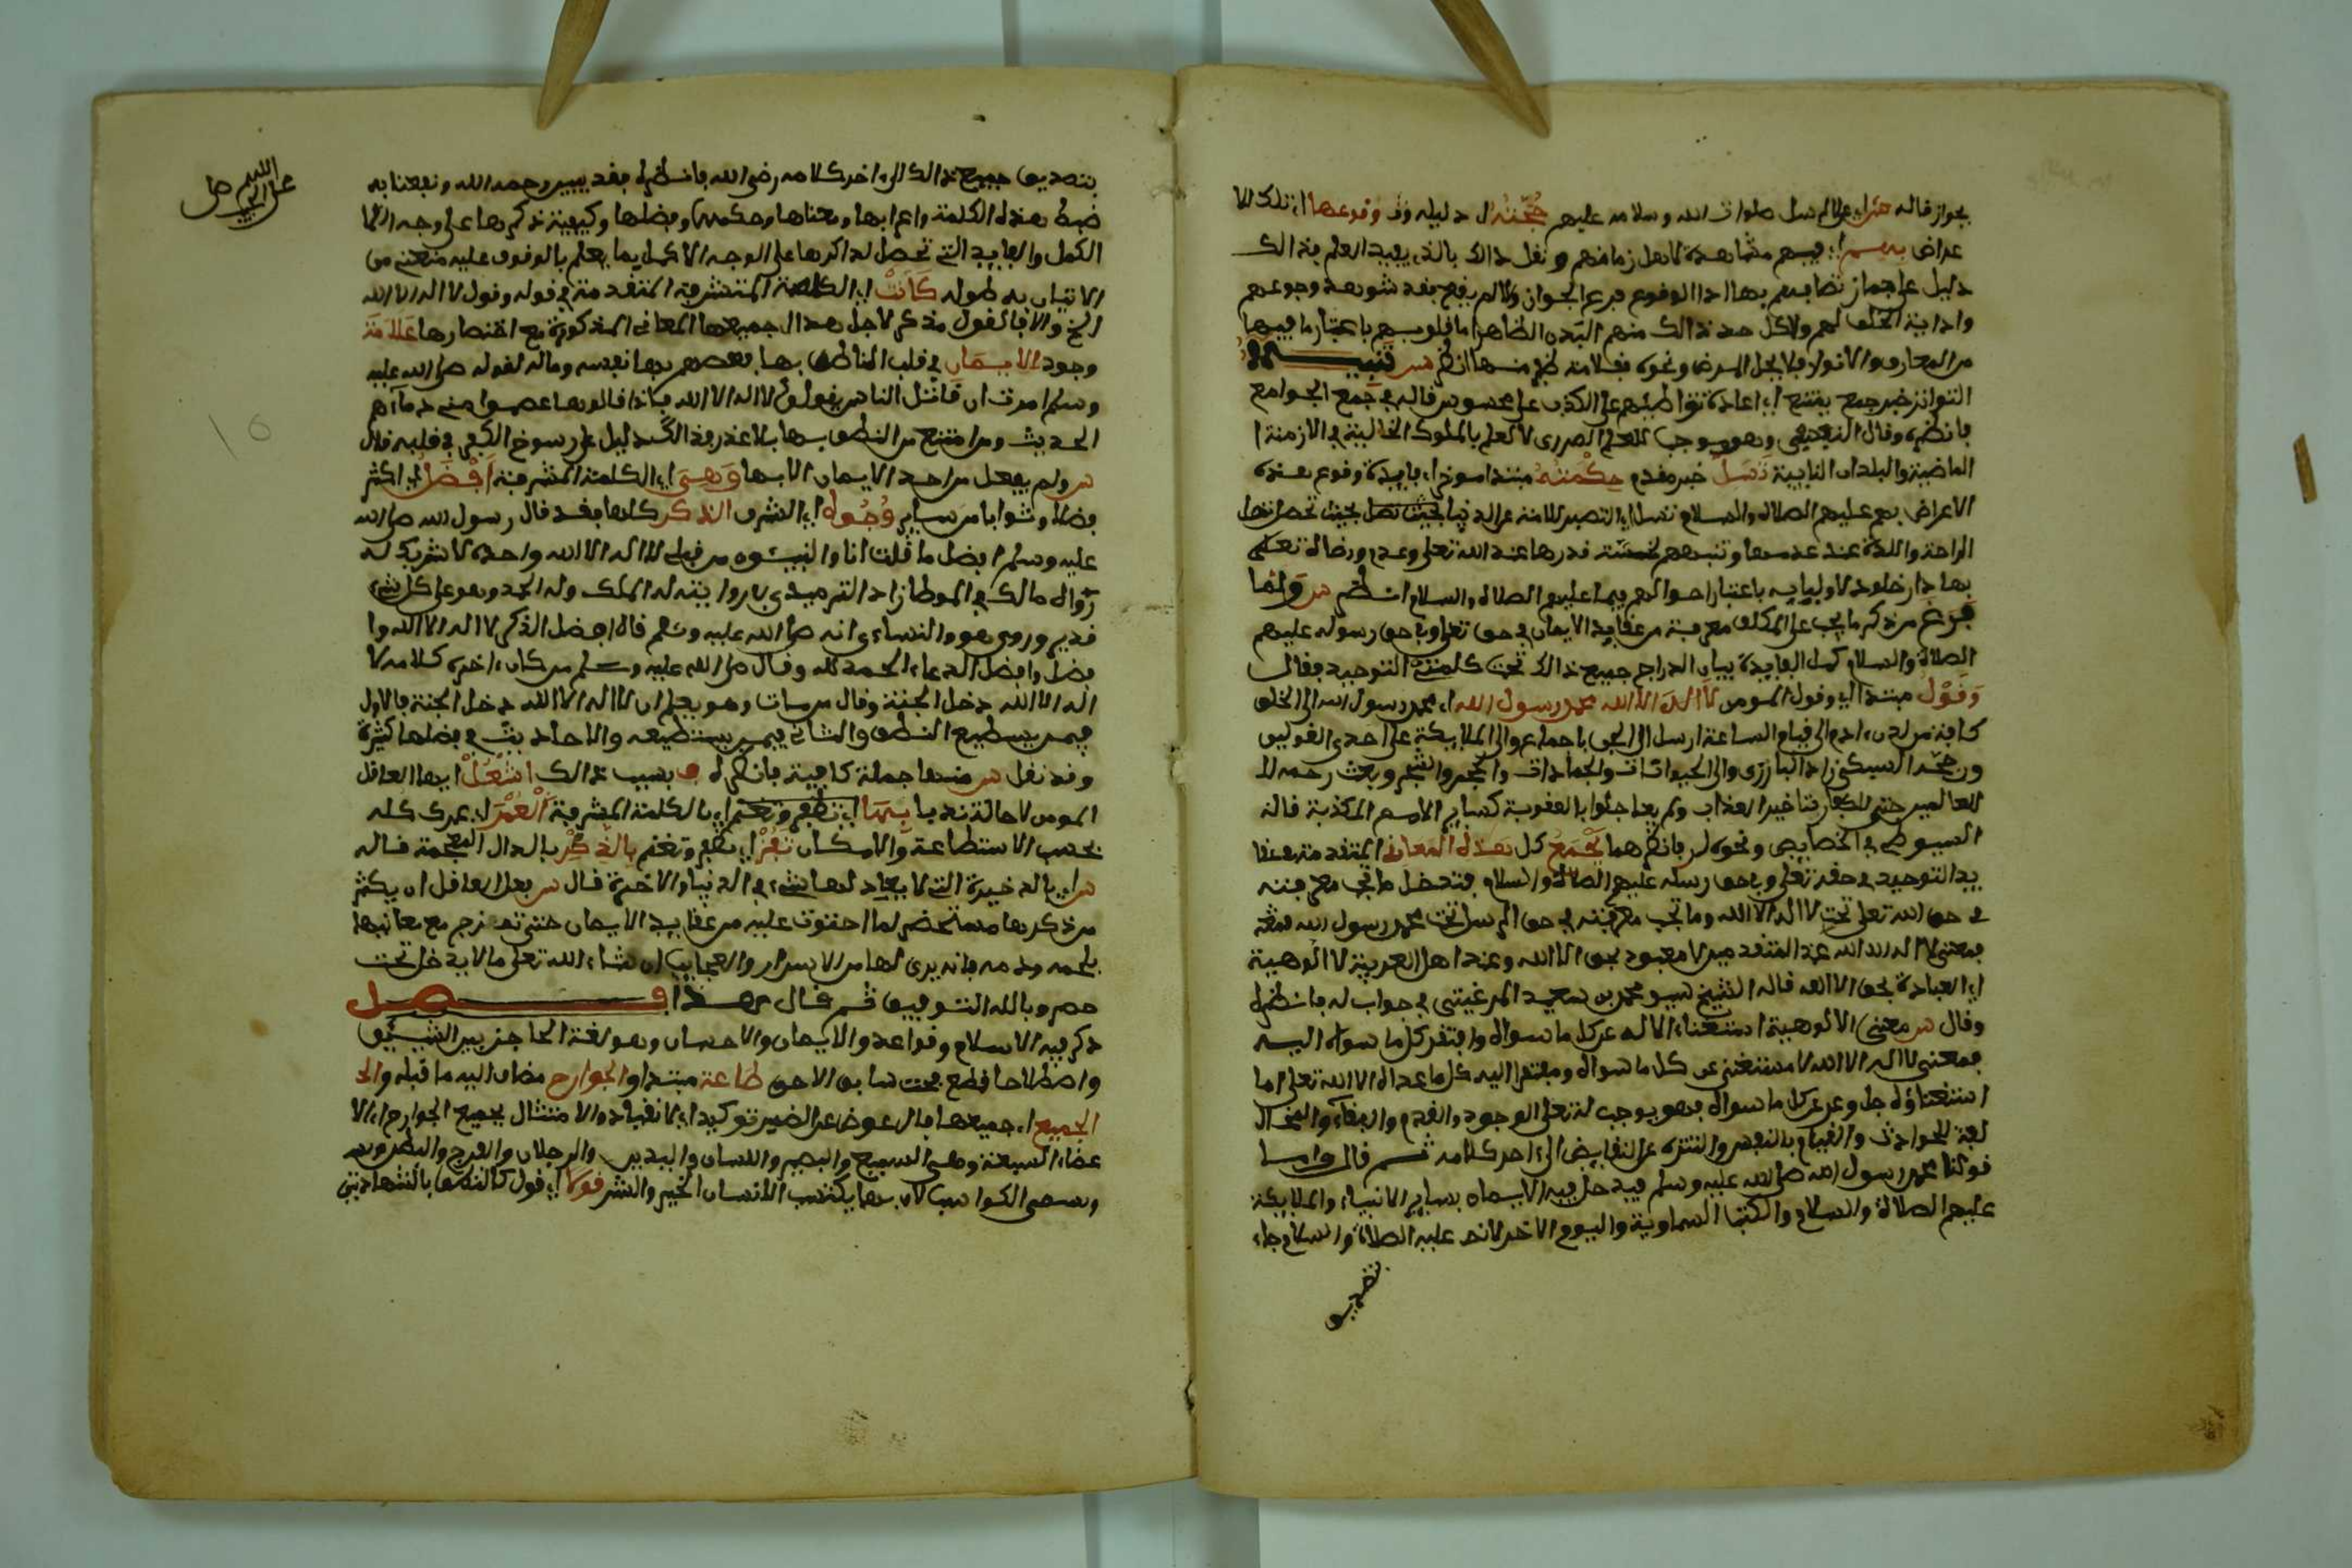 بجواز قاله على الرسل صلوات الله وسلامه عليهم حجته اي دليله وقوعها اي تلك الا
عراض بهم اي فيهم مشاهدة لاهل زمانهم ونقل ذالك بالذي يفيد العلم بذالك
دليل على جواز اتصافهم بها اذا الوقوع فرع الجواز وقد شوهد وجوعهم
واذاية الخلق لهم ولاكن حد ذالك منهم البدن الظاهر اما قلوبهم باعتبار ما فيها
من المعارف والانوار فلا يخل المرض ونحوه بقلامة ظفر منها انظر تنبيه
التواتر خبر جمع يمتنع اي عادة تواطئهم على الكذب على محسوس قاله في جمع الجوامع
فانظره وقال وهو موجب للعلم الضروري كالعلم بالملوك الخالية في الازمنة
الماضية والبلدان النايية تسل خبر مقدم حكمته مبتدا موخر اي فايدة وقوع هذه
الاعراض بهم عليهم الصلاة والسلام تسل اي التصبر عن الدنيا بحيث تحصل
الراحة واللذة عند عدمها وتنبههم لخسة قدرها عند الله تعلى وعدم رضاه تعلى
بها دار خلود لاوليايه باعتبار احوالهم فيها عليهم الصلاة والسلام انظر ولما
فرغ من ذكر ما يجب على المكلف معرفته من عقايد الايمان في حق تعلى وفي حق رسوله عليهم
الصلاة والسلام كمل الفايدة ببيان اندراج جميع ذالك تحت كلمتي التوحيد فقال
وقول مبتدا اي وقول المومن لا اله الا الله محمد رسول الله اي محمد رسول الله الى الخلق
كافة من لدن ادم الى قيام الساعة ارسل الى الجن باجماع والى الملايكة على احدى القولين
ورجحه السبكي زاد البارزي والى الحيوانات والجمادات والحجر والشجر وبعث رحمة لل
للعالمين حتى للكفار بتاخير العذاب ولم يعاجلوا بالعقوبة كساير الامم المكذبة قاله
السيوطي في الخصايص ونحوه فانظرهما يجمع كل هذه المعاني المتقدمة عقا
يد التوحيد في حقه تعلى وفي حق رسله عليهم الصلاة والسلام فتدخل ما تجب معرفته
في حق الله تعلى تحت لا اله الا الله وما تجب معرفته في حق الرسل تحت محمد رسول الله
فمعنى لا اله الا الله عند المتقدمين لا معبود بحق الا الله وعند اهل العربية لا الوهية
اي العبادة بحق الا الله قاله الشيخ محمد بن سعيد المرغيتي في جواب له فانظره
وقال معنى الالوهية استغناء الاله عن كل ما سواه وافتقر كل ما سواه اليه
فمعنى لا اله الا الله لا مستغنى عن كل ما سواه ومفتقرا اليه كل ما عداه الا الله تعلى اما
استغناؤه جل وعز عن كل ما سواه فهو يوجب له تعلى الوجود والقدم والبقاء والمخا
لفة للحوادث والقيام بالنفس والتنزه عن النقايص الى اخر كلامه ثم قال واما
قولنا محمد رسول الله صلى الله عليه وسلم فيدخل فيه الايمان بساير الانبياء والملايكة
عليهم الصلاة والسلام والكتب السماوية واليوم الاخر لانه عليه الصلاة والسلام جاء
بتصديق
بتصديق جميع ذالك الى اخر كلامه رضي الله فانظره فقد بين رحمه الله ونفعنا به
ضبط هذه الكلمة واعرابها ومعناها وحكمها وفضلها وكيفية ذكرها على وجه
الكمل والفايد التي تحصل لذاكرها على الوجه الاكمل بما يعلم بالوقوف عليه منعني من
الاتيان به طوله كانت اي الكلمة المشرفة المتقدمة في قوله وقول لا اله الا الله
الخ والافبالقول مذكر لاجل هذا جميعها المعاني المذكورة مع اختصارها علامة
وجود الايمان في قلب الناطق بها يعصم بها نفسه وماله لقوله صلى الله عليه
وسلم امرت ان اقاتل الناس يقولوا لا اله الا الله فاذا قالوها عصموا مني دماءهم
الحديث ومن امتنع من النطق بها بلا عذر فذالك دليل على رسوخ الكفر في قلبه قال
ولم يقبل من احد الايمان الا بها وهي اي الكلمة المشرفة افضل اي اكثر
فضلا وثوابا من ساير وجوه اي الشرف الذكر كلها فقد قال رسول الله صلى الله
عليه وسلم افضل ما قلت انا والنبيئون من قبلي لا اله الا الله وحده لا شريك له
رواه مالك في الموطا زاد الترميذي في روايته له الملك وله الحمد وهو على كل شيء
قدير وروى هو والنساءي انه صلى الله عليه وسلم قال افضل الذكر لا اله الا الله وا
فضل وافضل الدعاء الحمد لله وقال صلى الله عليه وسلم من كان اخر كلامه لا
اله الا الله دخل الجنة وقال من مات وهو يعلم ان لا اله الا الله دخل الجنة فالاول
فيمن يسطيع النطق والثاني فيمن يستطيعه والاحاديث في فضلها كثيرة
وقد نقل منها جملة كافية فانظره فبسبب ذالك اشغل ايها العاقل
المومن لا حالة ندبا بها اي تظفر وتغنم اي بالكلمة المشرفة العمر اي عمرك كله
بحسب الاستطاعة والامكان تفز اي تظفر وتغنم بالذخر بالدال المعجمة قاله
اي بالذخيرة التي لا يعادلها شيء في الدنيا والاخرة قال فعلى العاقل ان يكثر
من ذكرها مستحضرا لما احتوت عليه من عقايد الايمان حتى تمتزج مع معانيها
بلحمه ودمه فانه يرى لها من الاسرار والعجايب ان شاء الله تعلى ما لا يدخل تحت
حصر وبالله التوفيق ثم قال هذا فصل
ذكر فيه الاسلام وقواعده والايمان والاحسان وهو لغة الحاجز بين الشيئين
واصطلاحا قطع بحث سابق الاحق طاعة مبتدا والجوارح مضاف اليه ما قبله والجـ
الجميع اي جميعها فال عوض عن الضمير توكيد اي لانقياد والامتثال بجميع الجوارح اي الا
عضاء السبعة وهي السميع والبصر واللسان واليدين والرجلان والفرج والبطن وهي
وسمى الكواسب لان بها يكتسب الانسان الخير والشر قولا اي قول كالنطق بالشهادتين
اللهم صل
على الحبيب
10